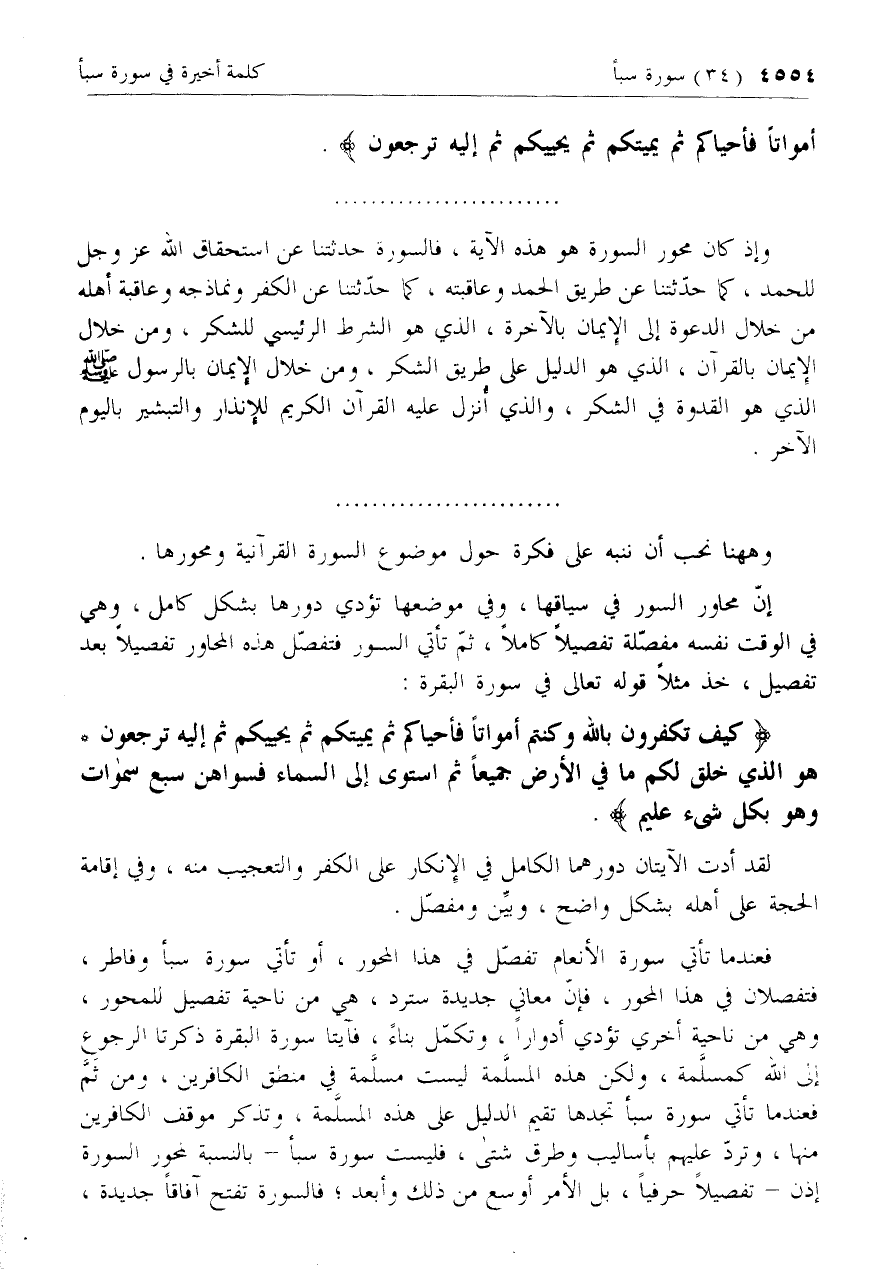 ٤٥٥٤ (٣٤) سورة سبأ كلمة أخيرة في سورة سبأ
أمواتاً فأحياكم ثم يميتكم ثم يحييكم ثم إليه ترجعون ﴾ .
........................
وإذ كان محور السورة هو هذه الآية ، فالسورة حدثتنا عن استحقاق الله عز وجل
للحمد ، كما حدّثتنا عن طريق الحمد وعاقبته ، كما حدّثتنا عن الكفر ونماذجه وعاقبة أهله
من خلال الدعوة إلى الإيمان بالآخرة ، الذي هو الشرط الرئيسي للشكر ، ومن خلال
الإيمان بالقرآن ، الذي هو الدليل على طريق الشكر ، ومن خلال الإيمان بالرسول ﷺ
الذي هو القدوة في الشكر ، والذي أُنزل عليه القرآن الكريم للإنذار والتبشير باليوم
الآخر .
........................
وههنا نحب أن ننبه على فكرة حول موضوع السورة القرآنية ومحورها .
إنّ محاور السور في سياقها ، وفي موضعها تؤدي دورها بشكل كامل ، وهي
في الوقت نفسه مفصّلة تفصيلاً كاملاً ، ثمّ تأتي السور فتفصّل هذه المحاور تفصيلاً بعد
تفصيل ، خذ مثلاً قوله تعالى في سورة البقرة :
﴿ كيف تكفرون بالله وكنتم أمواتاً فأحياكم ثم يميتكم ثم يحييكم ثم إليه ترجعون *
هو الذي خلق لكم ما في الأرض جميعاً ثم استوى إلى السماء فسواهن سبع سمٰوات
وهو بكل شىء عليم ﴾ .
لقد أدت الآيتان دورهما الكامل في الإنكار على الكفر والتعجيب منه ، وفي إقامة
الحجة على أهله بشكل واضح ، وبيِّن ومفصّل .
فعندما تأتي سورة الأنعام تفصّل في هذا المحور ، أو تأتي سورة سبأ وفاطر ،
فتفصلان في هذا المحور ، فإنّ معاني جديدة سترد ، هي من ناحية تفصيل للمحور ،
وهي من ناحية أخري تؤدي أدواراً ، وتكمّل بناءً ، فآيتا سورة البقرة ذكرتا الرجوع
إلى الله كمسلَّمة ، ولكن هذه المسلَّمة ليست مسلَّمة في منطق الكافرين ، ومن ثَمَّ
فعندما تأتي سورة سبأ تجدها تقيم الدليل على هذه المسلَّمة ، وتذكر موقف الكافرين
منها ، وتردّ عليهم بأساليب وطرق شتىٰ ، فليست سورة سبأ – بالنسبة لمحور السورة
إذن – تفصيلاً حرفياً ، بل الأمر أوسع من ذلك وأبعد ؛ فالسورة تفتح آفاقاً جديدة ،